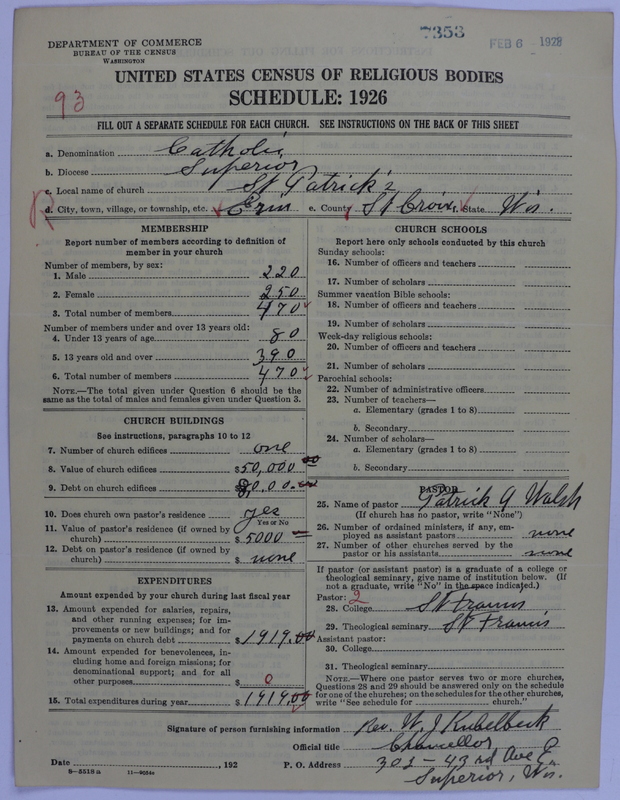 7353
FEB 6 - 1928
DEPARTMENT OF COMMERCE
BUREAU OF THE CENSUS
WASHINGTON
UNITED STATES CENSUS OF RELIGIOUS BODIES
SCHEDULE: 1926
93
FILL OUT A SEPARATE SCHEDULE FOR EACH CHURCH. SEE INSTRUCTIONS ON THE BACK OF THIS SHEET
a. Denomination Catholic
b. Diocese Superior
c. Local name of church St Patrick's
R d. City, town, village, or township, etc. Erin e. County St Croix f. State Wis.
MEMBERSHIP
Report number of members according to definition of
member in your church
Number of members, by sex:
1. Male 220
2. Female 250
3. Total number of members 470
Number of members under and over 13 years old:
4. Under 13 years of age 80
5. 13 years old and over 390
6. Total number of members 470
NOTE.—The total given under Question 6 should be the
same as the total of males and females given under Question 3.
CHURCH BUILDINGS
See instructions, paragraphs 10 to 12
7. Number of church edifices one
8. Value of church edifices $50,000 00
9. Debt on church edifices
10. Does church own pastor's residence yes
Yes or No
11. Value of pastor's residence (if owned by
church) $5000
12. Debt on pastor's residence (if owned by
church) $ none
EXPENDITURES
Amount expended by your church during last fiscal year
13. Amount expended for salaries, repairs,
and other running expenses; for im-
provements or new buildings; and for
payments on church debt $1919.00
14. Amount expended for benevolences, in-
cluding home and foreign missions; for
denominational support; and for all
other purposes $ 0
15. Total expenditures during year $1919.00
CHURCH SCHOOLS
Report here only schools conducted by this church
Sunday schools:
16. Number of officers and teachers
17. Number of scholars
Summer vacation Bible schools:
18. Number of officers and teachers
19. Number of scholars
Week-day religious schools:
20. Number of officers and teachers
21. Number of scholars
Parochial schools:
22. Number of administrative officers
23. Number of teachers—
a. Elementary (grades 1 to 8)
b. Secondary
24. Number of scholars—
a. Elementary (grades 1 to 8)
b. Secondary
PASTOR
25. Name of pastor Patrick J Walsh
(If church has no pastor, write "None")
26. Number of ordained ministers, if any, em-
ployed as assistant pastors none
27. Number of other churches served by the
pastor or his assistants none
If pastor (or assistant pastor) is a graduate of a college or
theological seminary, give name of institution below. (If
not a graduate, write "No" in the space indicated.)
Pastor: 2
28. College St Francis
29. Theological seminary St Francis
Assistant pastor:
30. College
31. Theological seminary
NOTE.—Where one pastor serves two or more churches,
Questions 28 and 29 should be answered only on the schedule
for one of the churches; on the schedules for the other churches,
write "See schedule for church."
Signature of person furnishing information Rev. W. J Kubelbeck
Official title Chancellor
Date , 192 P. O. Address 303 - 43rd Ave E.
8—5518a 11—9034a Superior, Wis.